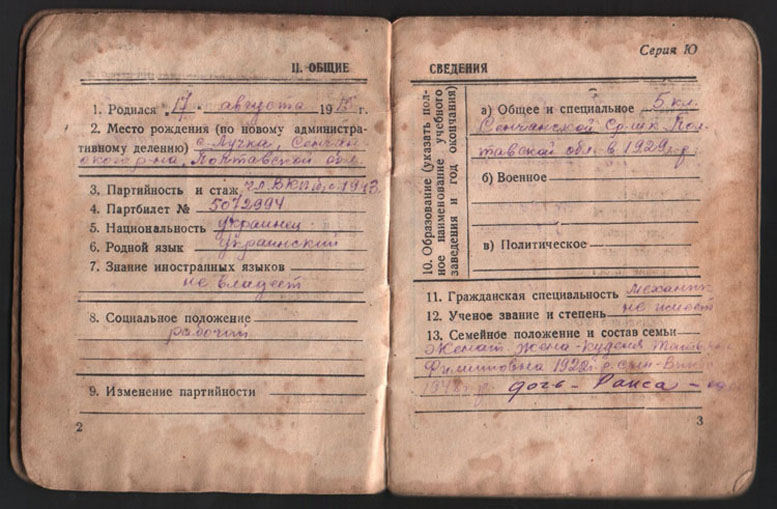 II. ОБЩИЕ
1. Родился 17 августа 19 г.
2. Место рождения (по новому администра-
тивному делению) с. Лучка, Сенчан-
ского р-на, Полтавской обл.
3. Партийность и стаж чл. ВКП(б) с 1943
4. Партбилет № 5072994
5. Национальность украинец
6. Родной язык украинский
7. Знание иностранных языков
не владеет
8. Социальное положение
рабочий
9. Изменение партийности
2
Серия Ю
СВЕДЕНИЯ
10. Образование (указать пол-
ное наименование учебного
заведения и год окончания)
а) Общее и специальное 5 кл.
Сенчанской Ср. шк. Пол-
тавской обл. в 1929 г.
б) Военное
в) Политическое
11. Гражданская специальность механик
12. Ученое звание и степень не имеет
13. Семейное положение и состав семьи
Женат жена
Филипповна 1922 г.р. сын
дочь - Раиса -
3